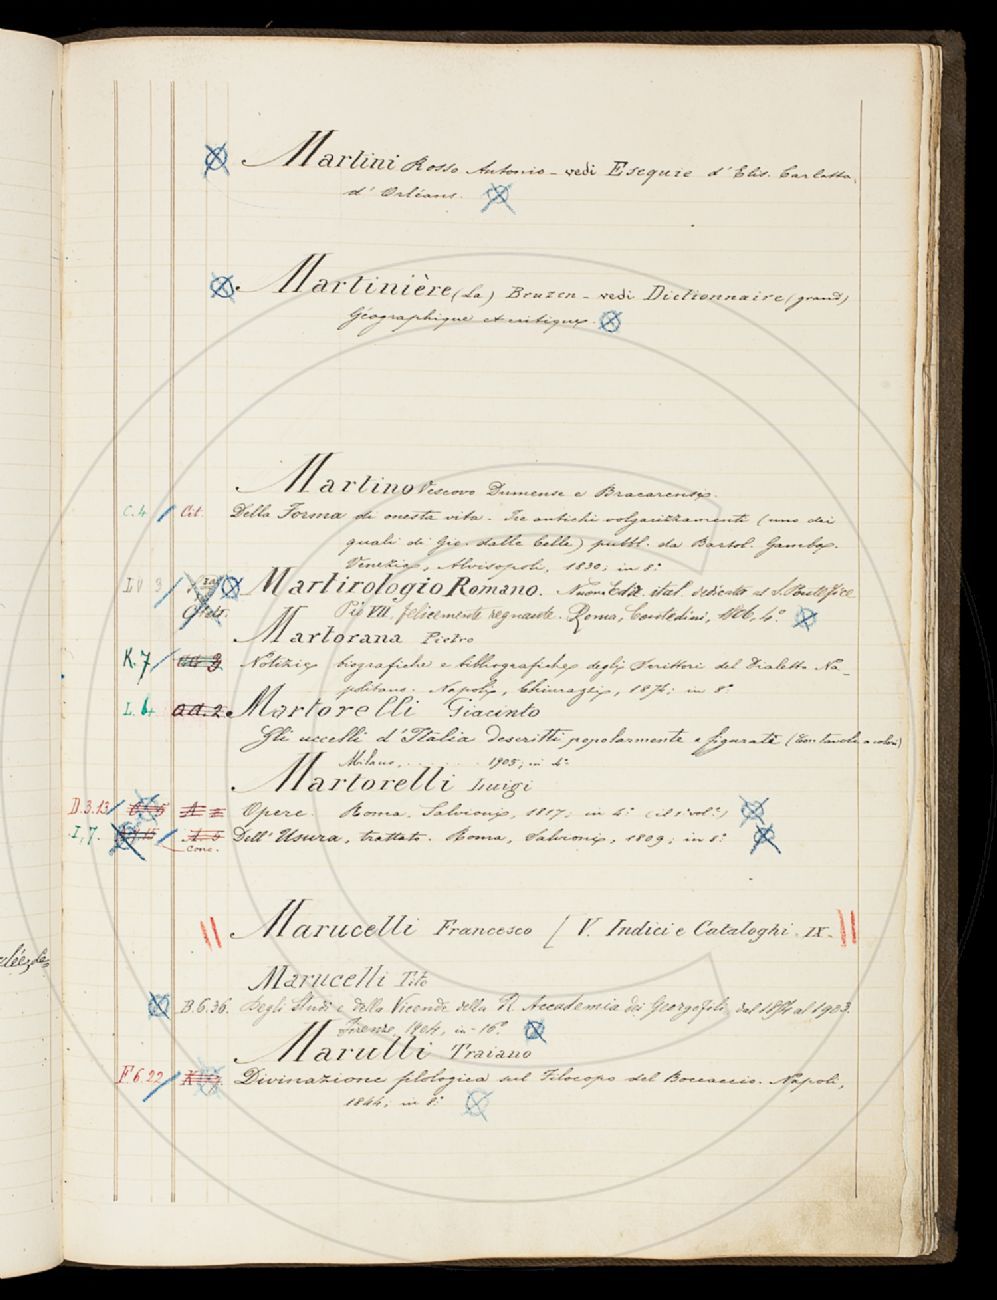 Martini Rosso Antonio - vedi Esequie d'Elis. Carlotta
d'Orléans.
Martinière (La) Bruzen - vedi Dictionnaire (grand)
Géographique et critique.
Martino Vescovo Dumense e Bracarense.
C. 4 Cit. Della Forma di onesta vita. Tre antichi volgarizzamenti (uno dei
quali di Gio. dalle Celle) pubbl. da Bartol. Gamba.
Venezia, Alvisopoli, 1830; in 8.°
Martirologio Romano. Nuova Ediz. ital. dedicata al S. Pontefice
Pio VII. felicemente regnante. Roma, Contedini, 4.°
Martorana Pietro
K. 7 Notizie biografiche e bibliografiche degli Scrittori del Dialetto Na-
politano. Napoli, Chiurazzi, 1874; in 8.°
L. 4 a d. 2 Martorelli Giacinto
Gli uccelli d'Italia descritti popolarmente e figurati (con tavole a colori)
Milano, 1905; in 4.°
Martorelli Luigi
D. 3. 13 Opere. Roma, Salvioni, 1817; in 4.° (il 1.° vol.°)
I, 7. Dell'Usura, trattato. Roma, Salvioni, 1809; in 8.°
Conc.
Marucelli Francesco [ V. Indici e Cataloghi - IX -
Marucelli Tito
B. 6. 36. Degli Studi e delle Vicende della R. Accademia dei Georgofili dal 1854 al 1903.
Firenze, 1904, in-16.°
Marulli Traiano
F 6. 22 Divinazione filologica sul Filocopo del Boccaccio. Napoli,
1844, in 8.°